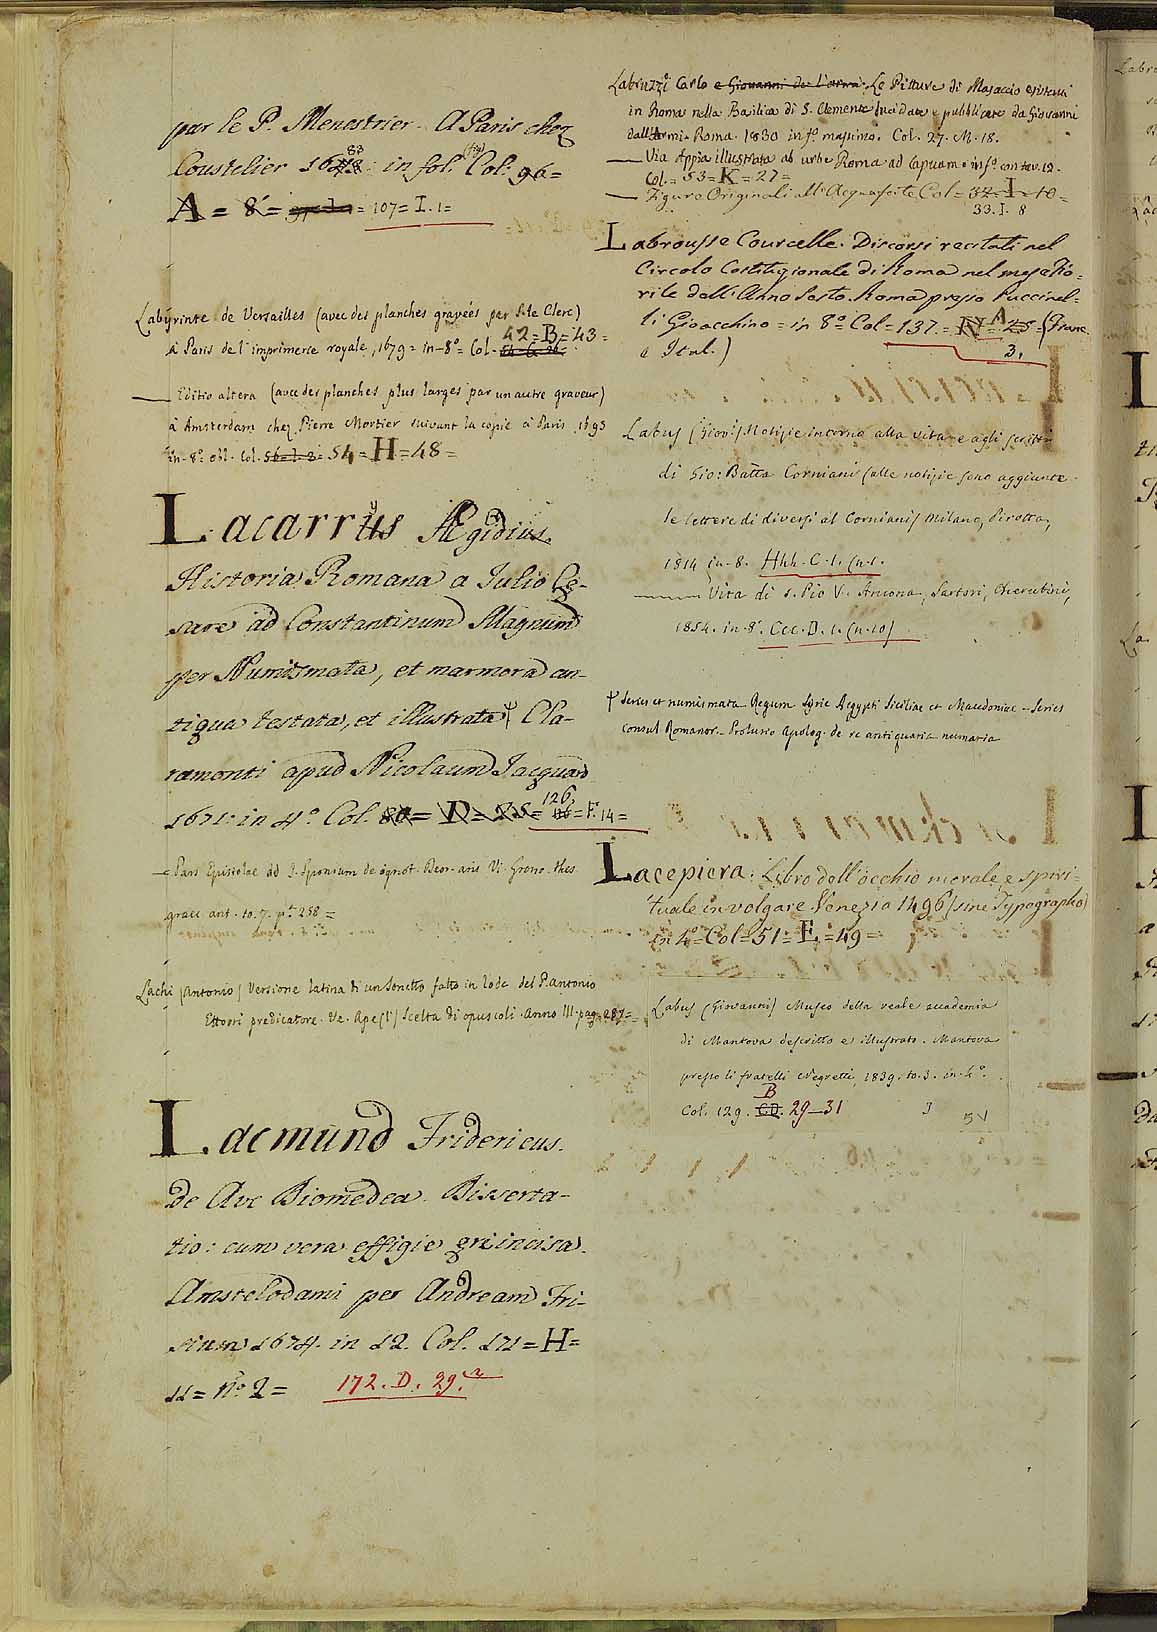 par le P. Menestrier. A Paris chez
Coustelier 1683 in fol. (fig) Col. 96=
A = 8 = = 107= I. 1=
Labyrinte de Versailles (avec des planches gravées par S. le Clerc)
à Paris de l'imprimerie royale, 1679 = in-8º = Col. 42=B=43=
Editio altera (avec des planches plus larges par un autre graveur)
à Amsterdam chez Pierre Mortier suivant la copie à Paris 1693
in-8º obl. Col. 56=I.2= 54=H=48=
Lacarrus Ægidius.
Historia Romana a Julio Ce-
sare ad Constantinum Magnum
per Numismata, et marmora an-
tiqua testata, et illustrata Ψ Cla-
ramonti apud Nicolaum Jacquard
1671. in 4º. Col. 80= D= 25= 126. 116=F.14=
Pars Epistolae ad J. Sponium de ignot. Deor. aris Vi. Grono. thes.
graec. ant. to. 7. p. 258=
Lachi (Antonio) Versione latina di un Sonetto fatto in lode del P. Antonio
Ettorri predicatore. Ve. Ape (l') Scelta di opuscoli. Anno III. pag. 287=
Lacmund Fridericus.
de Ave Diomedea. Disserta-
tio: cum vera effigie eri incisa.
Amstelodami per Andream Fri-
sium 1674. in 12. Col. 171=H=
11= nº 2= 172. D. 29.
Labruzzi Carlo e Giovanni de l'Armi. Le Pitture di Masaccio esistenti
in Roma nella Basilica di S. Clemente lucidate e pubblicate da Giovanni
dall'Armi. Roma. 1830 in fº. massimo. Col. 27. M. 18.
Via Appia illustrata ab urbe Roma ad Capuam = in fº. con tav. 12.
Col. = 53=K=27=
Figure Originali all'Acquaforte Col=32. I. 10=
33. I. 8
Labrousse Courcelle. Discorsi recitati nel
Circolo Costituzionale di Roma nel mese Fio-
rile dell'Anno Sesto. Roma presso Puccinel-
li Gioacchino = in 8º = Col=137.=N= A 25= (Franc.
e Ital.) 3.
Labus (Giov.) Notizie intorno alla vita e agli scritti
di Gio: Batta Corniani (alle notizie sono aggiunte
le lettere di diversi al Corniani) Milano, Pirotta,
1814 in-8. Hhh. C. 1. (n. 1.
Vita di S. Pio V. Ancona, Sartori, Cherubini,
1854. in-8º. Ccc. D. 1. (n. 10)
Ψ Series et numismata Regum Syrie Aegypti Siciliae et Macedoniae - Series
Consul Romanor. - Prolusio apolog. de re antiquaria numaria
Lacepiera. Libro dell'occhio morale, e spiri-
tuale in volgare. Venezia 1496 (sine Typographo)
in 4º = Col=51= E. =49=
Labus (Giovanni) Museo della reale accademia
di Mantova descritto e illustrato. Mantova
presso li fratelli Negretti, 1839. to. 3. in-4º.
B
Col. 129. C.D. 29—31 3 51